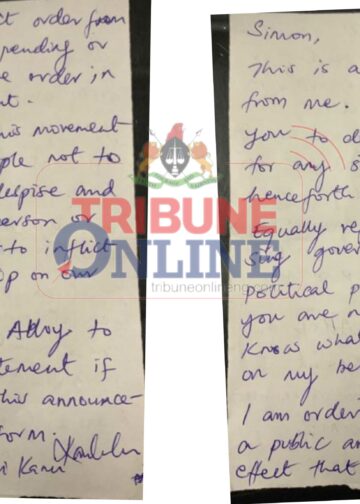 ct order from
pending or
e order in
t.
his movement
ple not to
espise and
erson or
to inflict
p on our
to
tement if
his announce-
form.
i Kanu
Simon,
This is a
from me.
you to d
for any s
henceforth
Equally re
Sing gover
political p
you are n
Know wha
on my be
I am order
a public an
effect that
TRIBUNE
ONLINE
tribuneonlineng.com